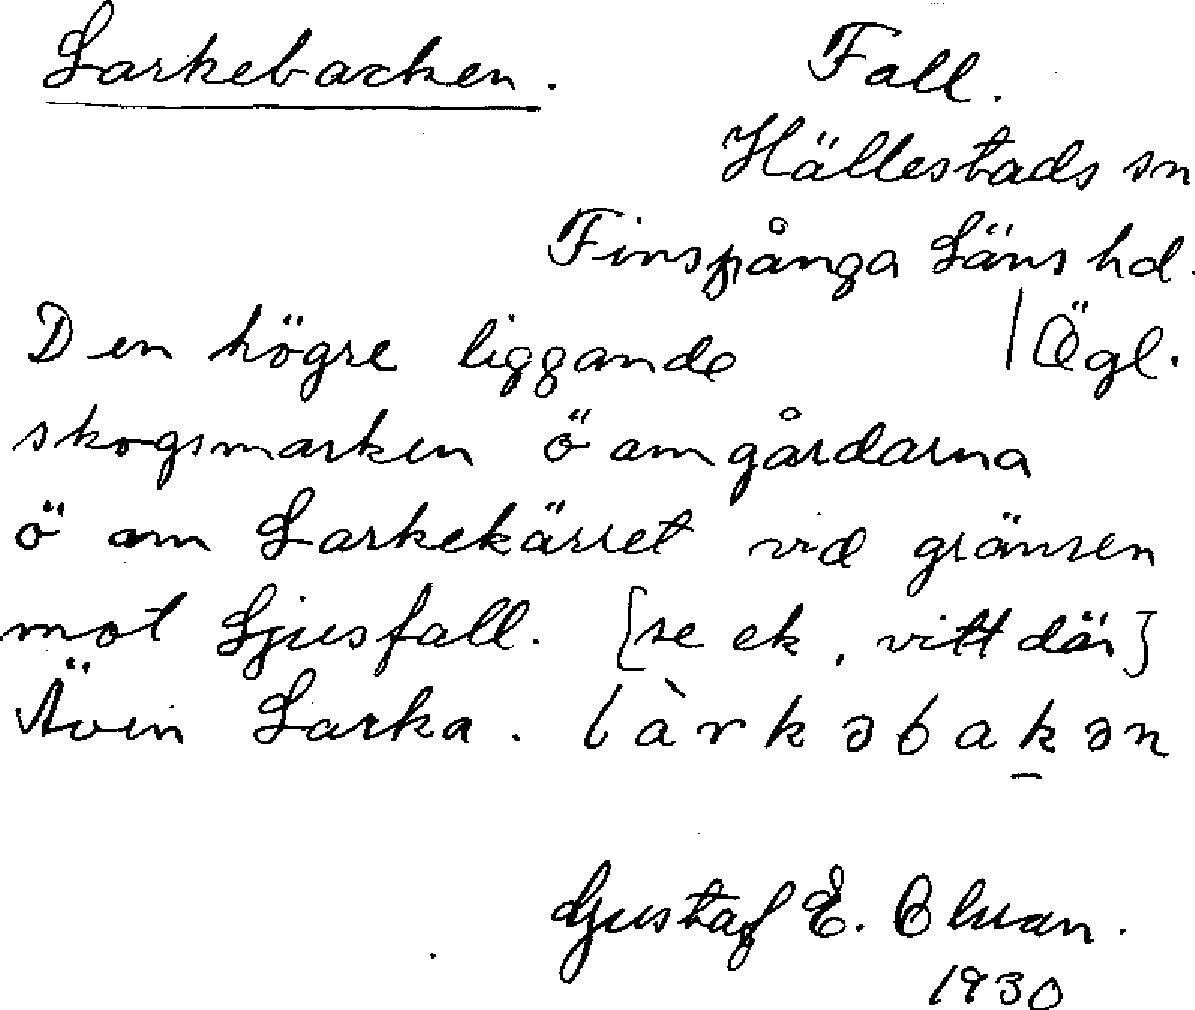 Larkebacken. Fall.
Hällestads sn
Finspånga Läns hd.
Den högre liggande | Ögl.
skogsmarken ö om gårdarna
ö om Larkekärret vid gränsen
mot Ljusfall. [se ek. vitt där]
Även Larka. làrkəbakən
Gustaf E.
1930